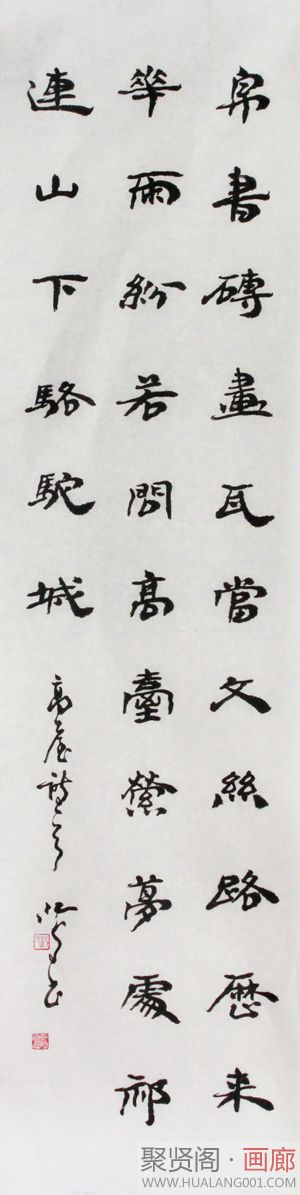 帛書磚畫瓦當文絲路歷来
華雨紛若問高臺縈夢處祁
連山下駱駝城
高臺詩一首
聚贤阁·画廊
WWW.HUALANG001.COM